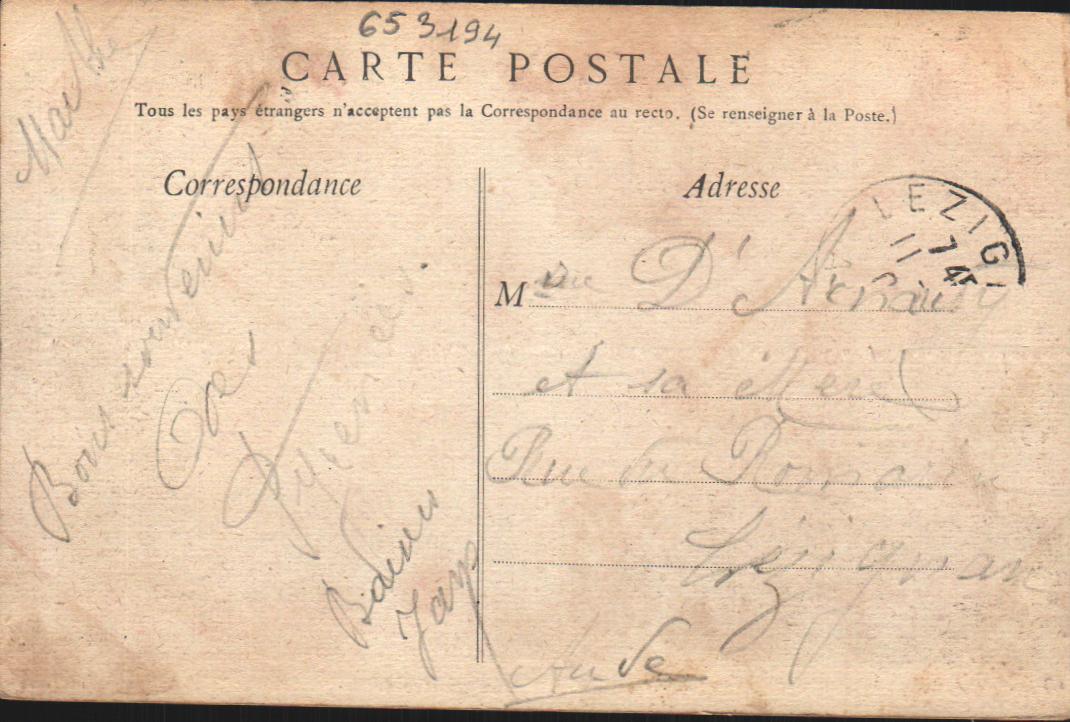 653194
CARTE POSTALE
Tous les pays étrangers n'acceptent pas la Correspondance au recto. (Se renseigner à la Poste.)
Correspondance
Marthe
Bons souvenirs
Des
Pyrenées.
Adresse
LEZIG
11 7 45
Mme D'Arnaud
et sa Mère
Rue du Romarin
Lézignan
Aude